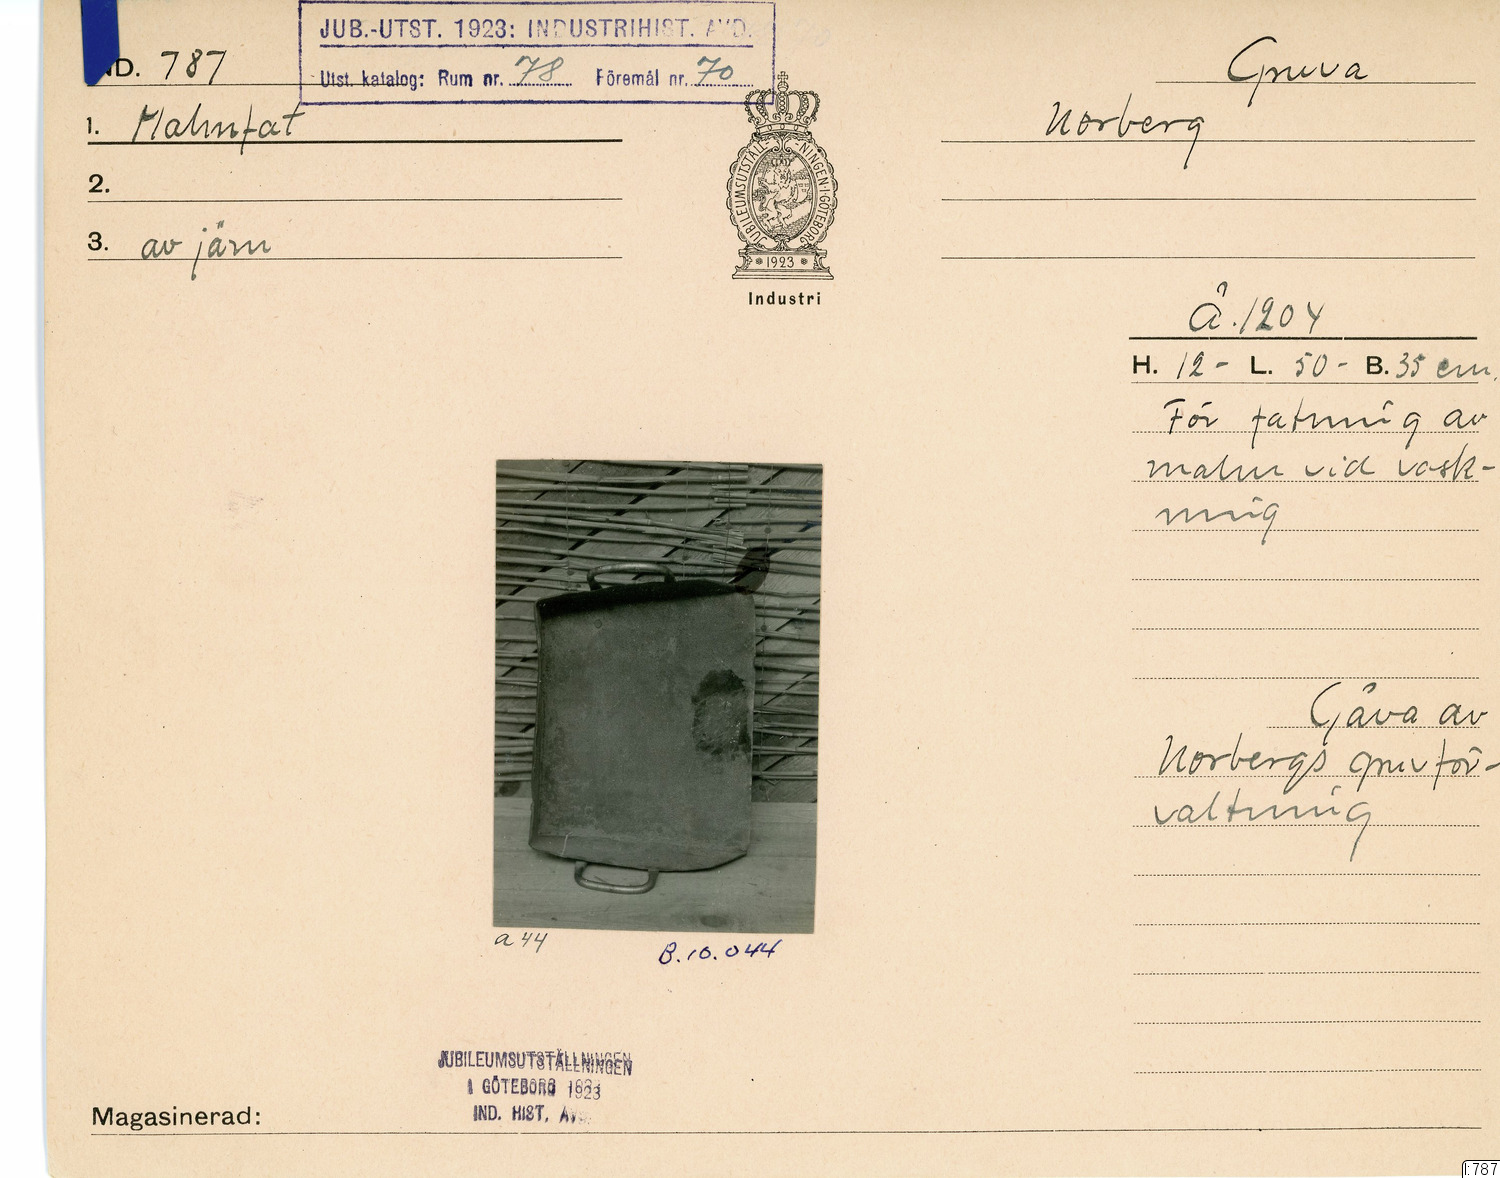 JUB.-UTST. 1923: INDUSTRIHIST. AVD.
Utst. katalog: Rum nr. 78 Föremål nr. 70
IND. 787
1. Malmfat
2.
3. av järn
JUBILEUMSUTSTÄLLNINGEN I GÖTEBORG
1923
Industri
Gruva
Norberg
Å.1204
H. 12- L. 50- B. 35 cm.
För fatning av
malm vid vask-
ning
Gåva av
Norbergs gruvför-
valtning
a 44
B.10.044
JUBILEUMSUTSTÄLLNINGEN
I GÖTEBORG 1923
IND. HIST. AVD.
Magasinerad:
I:787